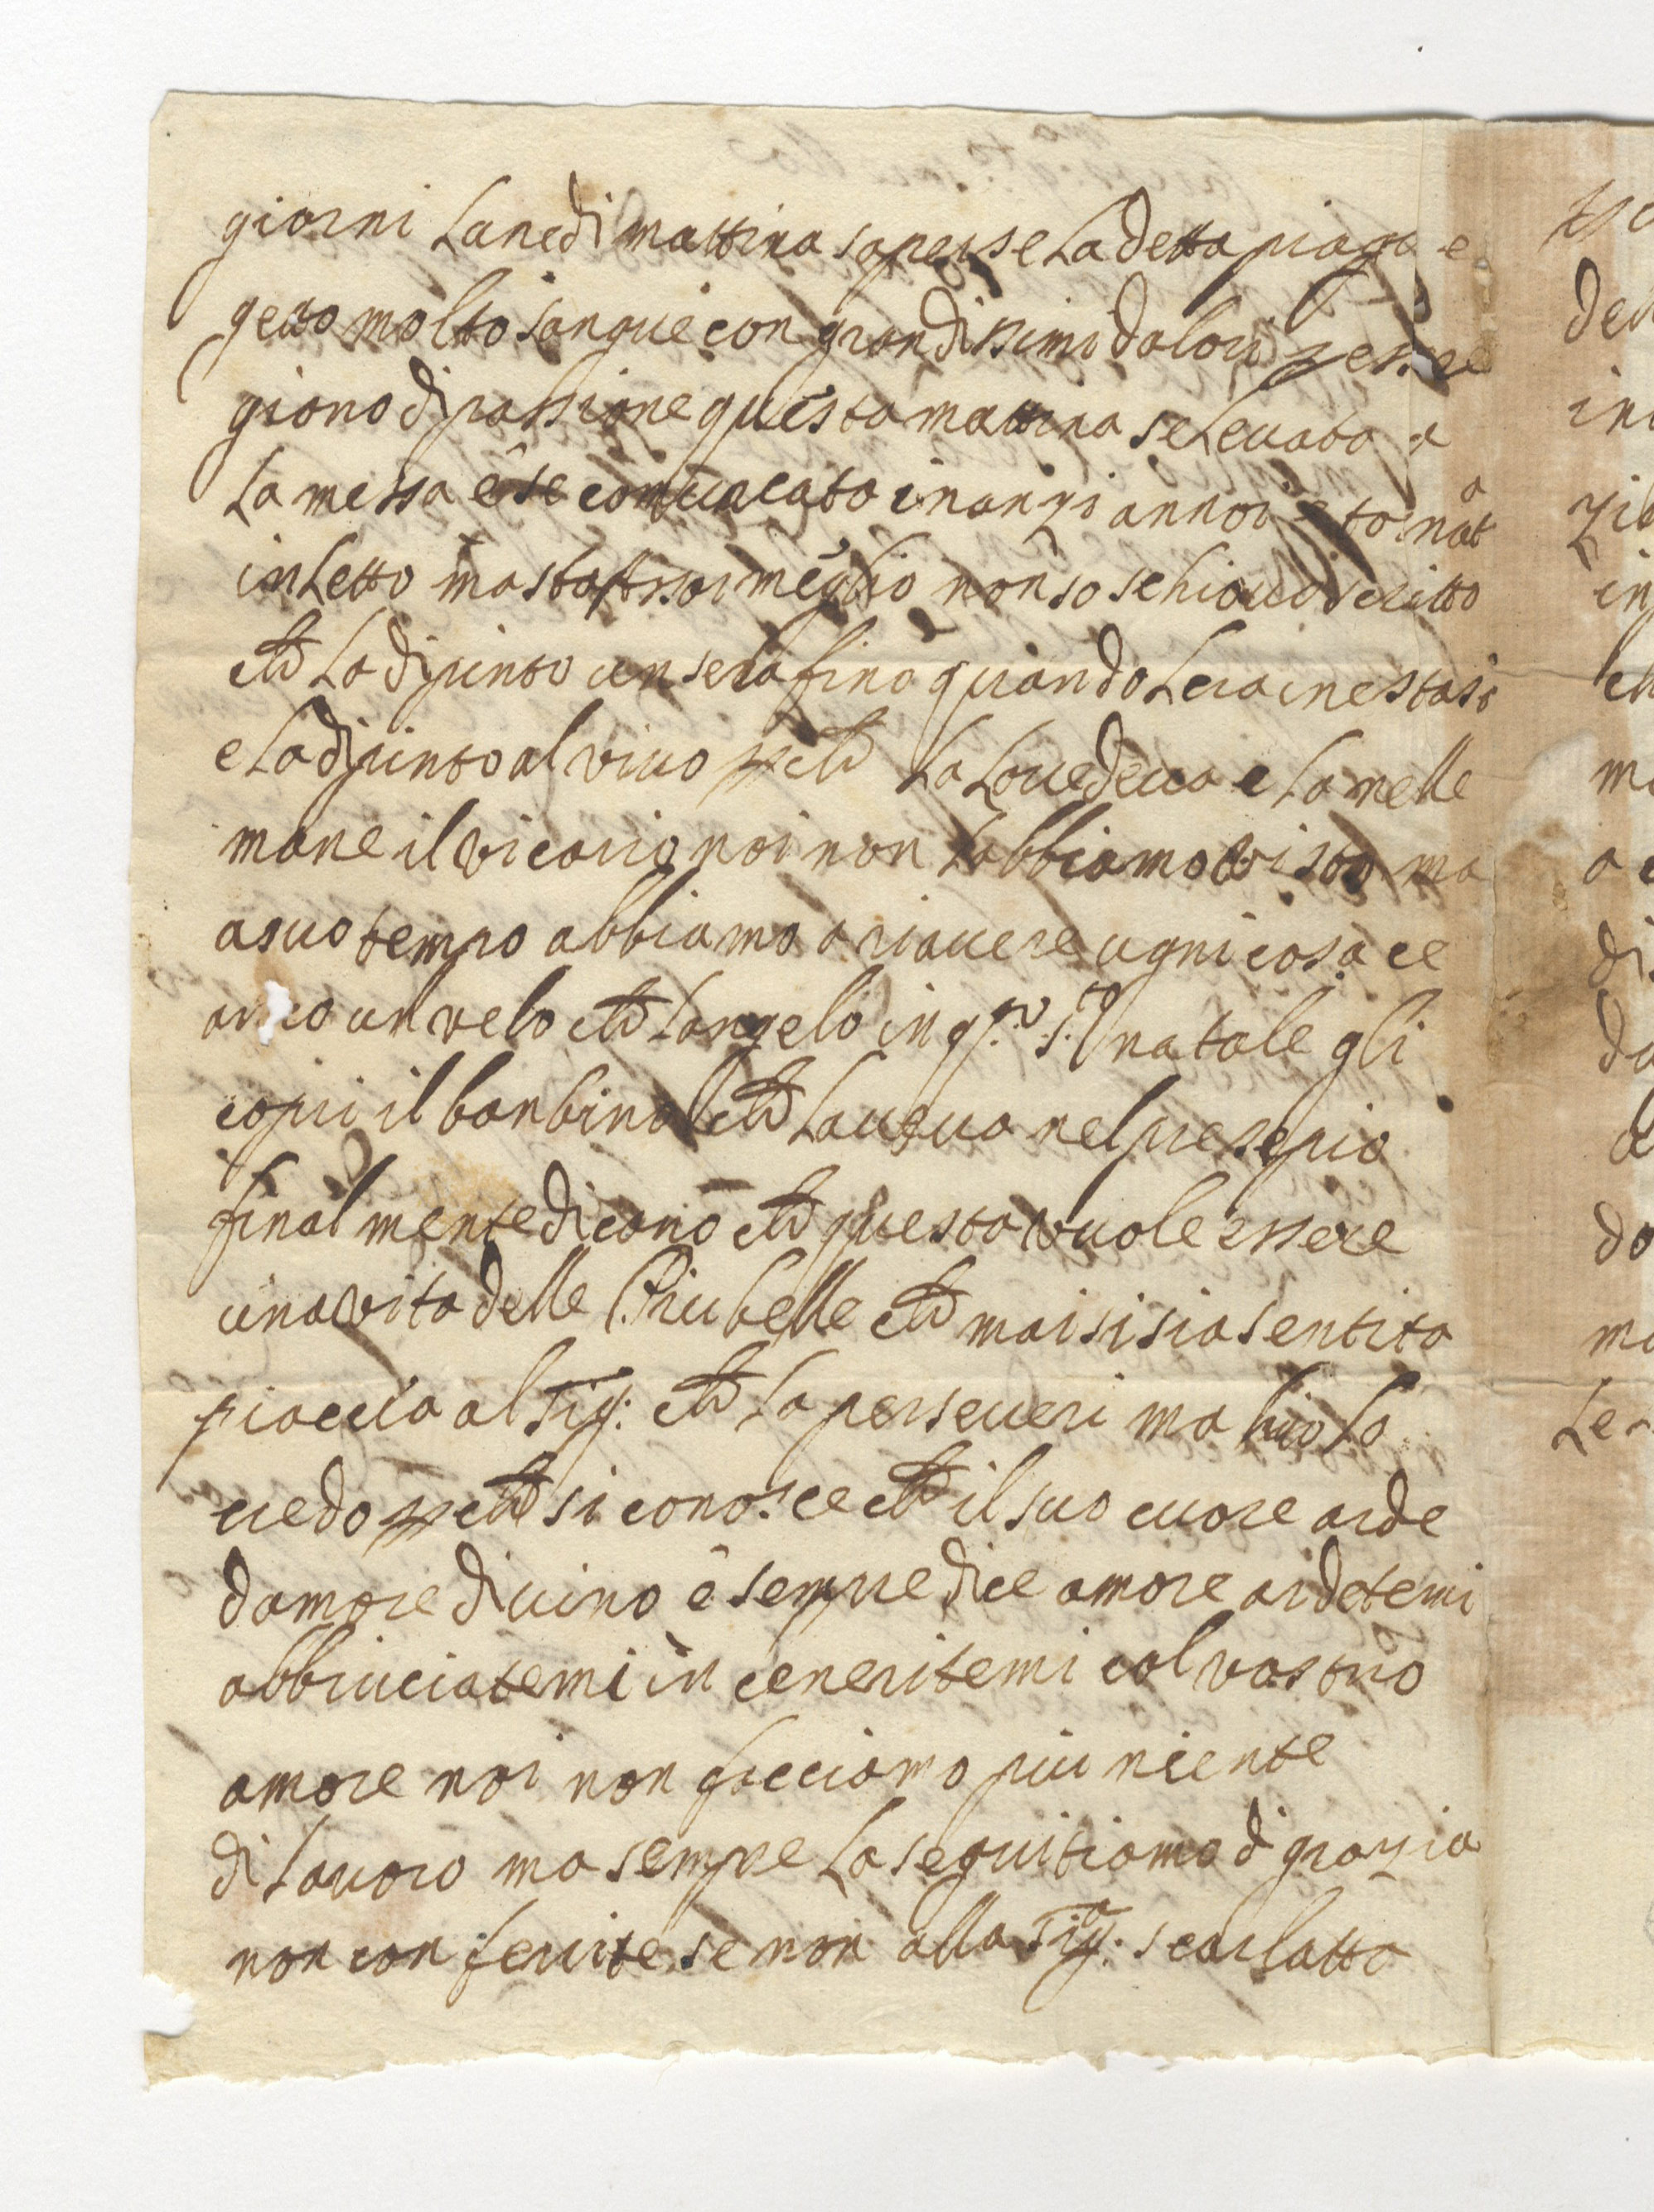 giorni Lunedi mattina saperse La detta piaga e
getto molto sangue con grandissimi dolori per
giono di passione questa mattina se Levata a
La messa e se comunicata inanzi annoi e tornata
in Letto ma sta meglio non so se hio vo scritto
che La dipinto un serafino quando Lera in estasi
e La dipinto al vivo p che La Lo vedeva e La nelle
mane il vicario noi non Labbiamo visto ma
a suo tempo abbiamo a riavere ugni cosa ce
anco un velo che Langelo in q.to s.to natale gli
copri il banbino che Laveva nel presepio
final mente dicano che questa vuole essere
una vita delle Piu belle che mai si sia sentita
piaccia al Sig: che La perseveri ma hio Lo
credo p che si conosce che il suo cuore arde
damore divino e sempre dice amore ardetemi
abbruciatemi in ceneritemi col vostro
amore noi non facciamo piu niente
di Lavoro ma sempre La seguitiamo di grazia
non conferite se non alla Sig.a scarlatta
det
in
zi
in
ch
ma
a
di
da
do
ma
Le